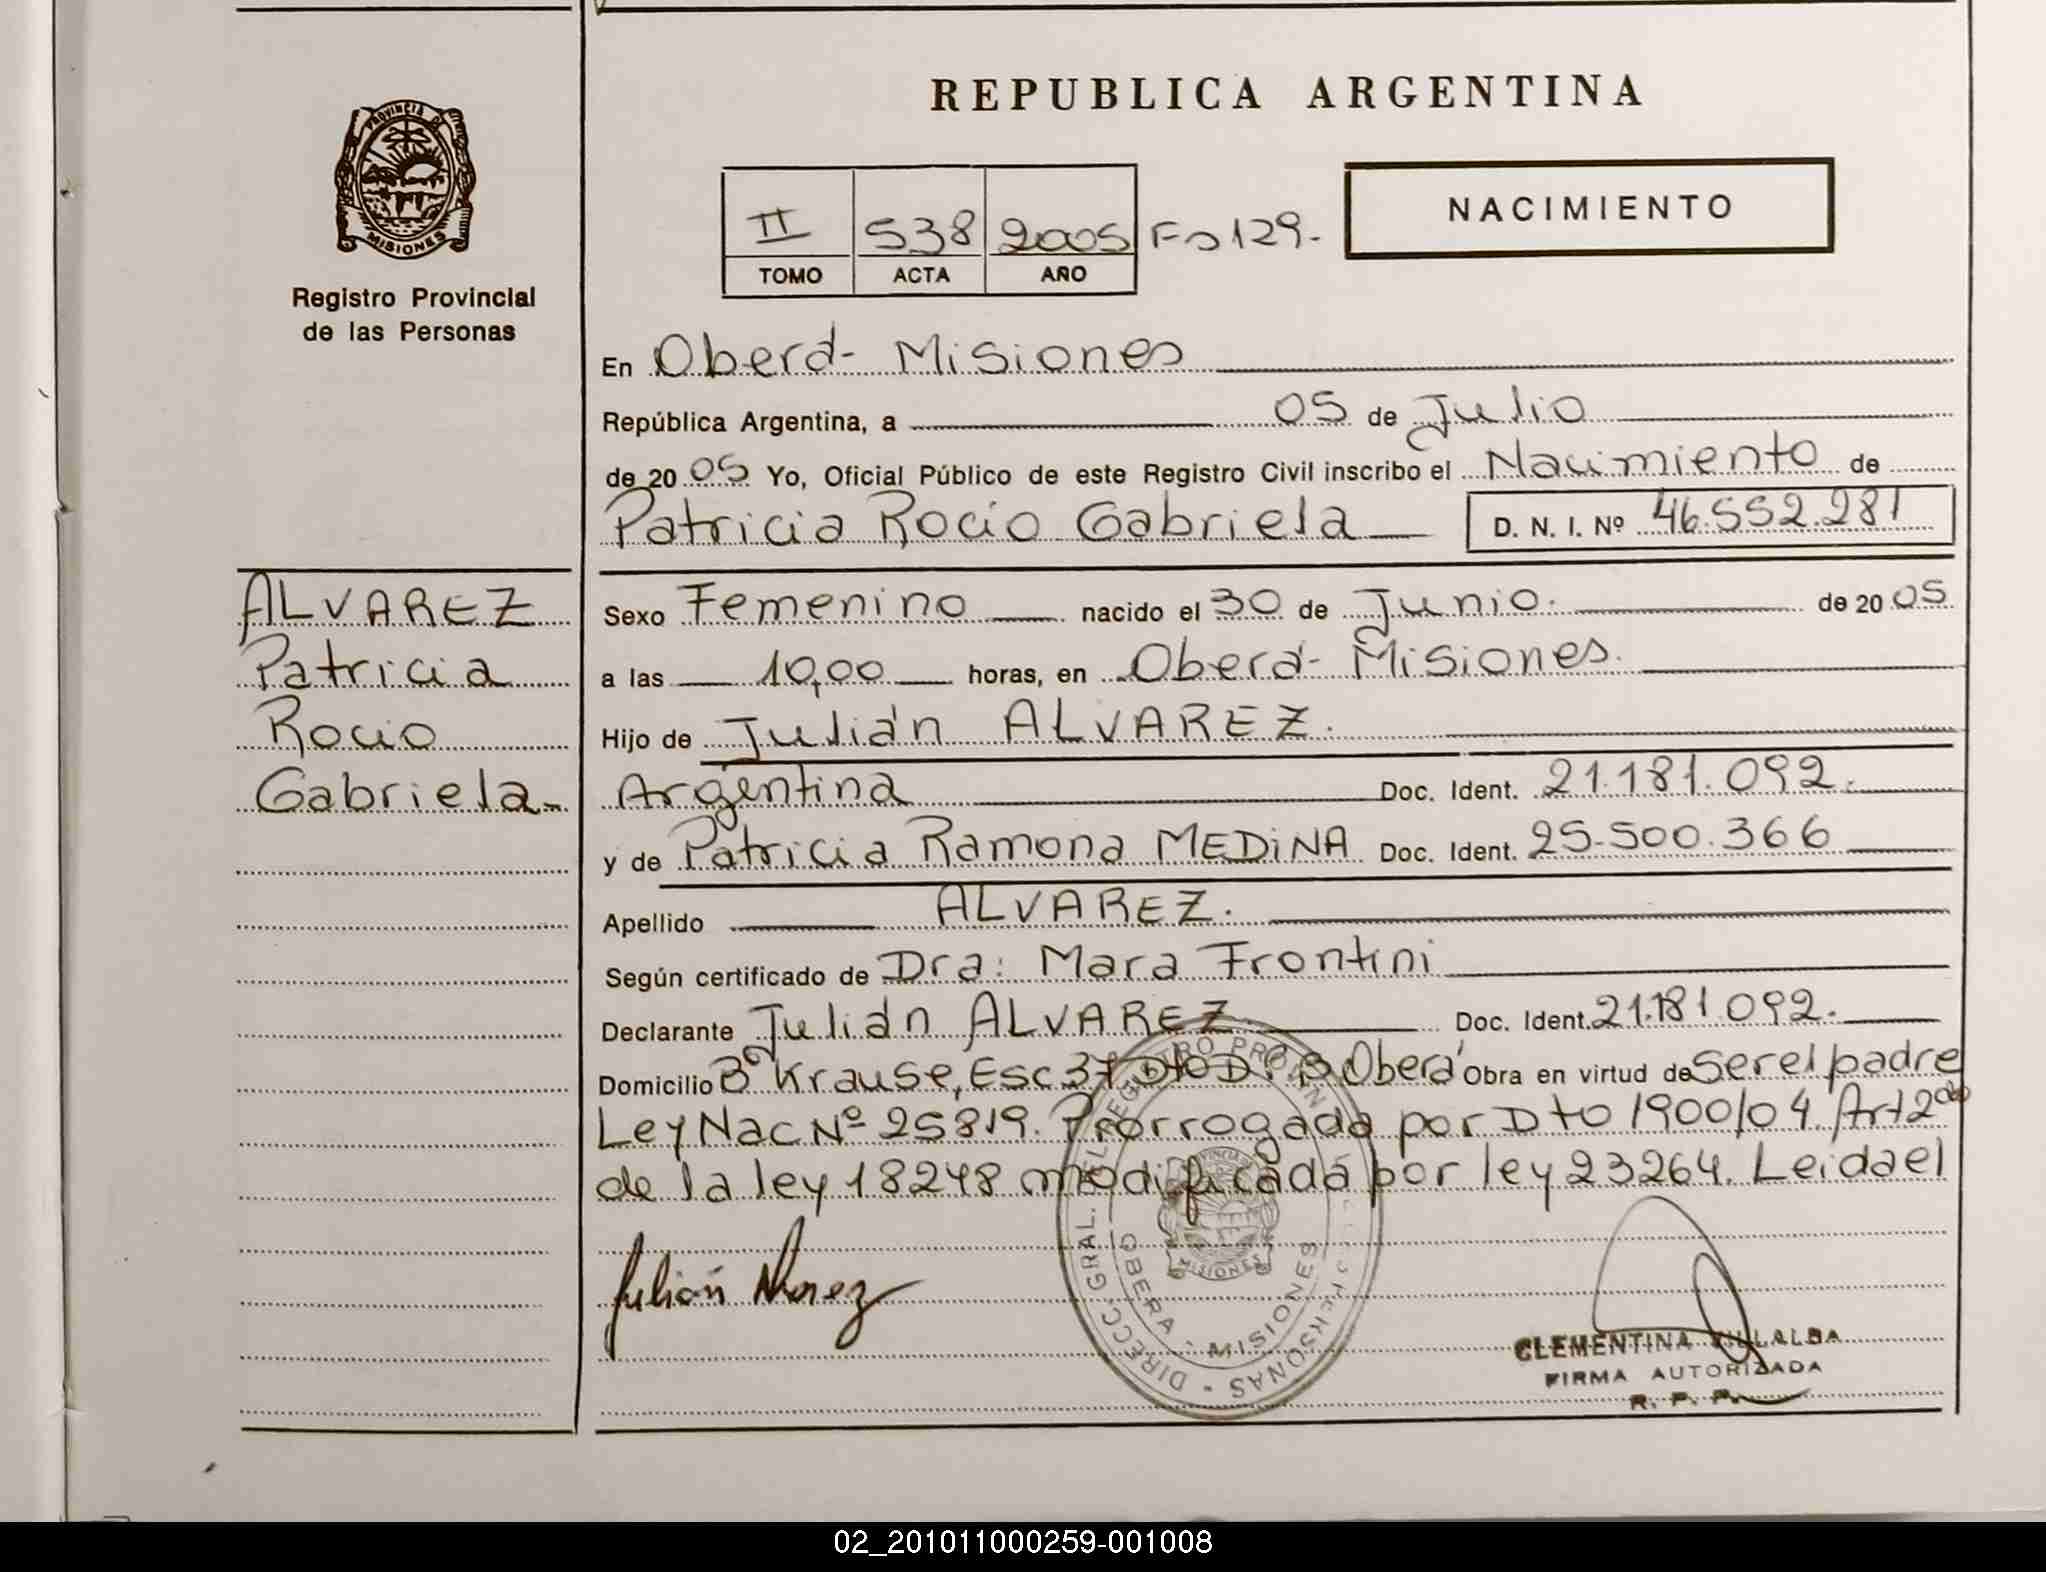 REPUBLICA ARGENTINA
PROVINCIA DE
MISIONES
Registro Provincial
de las Personas
II 538 2005 Fo 129.-
TOMO ACTA AÑO
NACIMIENTO
En Oberá- Misiones
República Argentina, a 05 de Julio
de 20 05 Yo, Oficial Público de este Registro Civil inscribo el Nacimiento de
Patricia Rocio Gabriela D. N. I. Nº 46.552.281
ALVAREZ
Patricia
Rocio
Gabriela-
Sexo Femenino nacido el 30 de Junio. de 20 05
a las 10,00 horas, en Oberá- Misiones.
Hijo de Julián ALVAREZ.
Argentina Doc. Ident. 21.181.092.
y de Patricia Ramona MEDINA Doc. Ident. 25.500.366
Apellido ALVAREZ.
Según certificado de Dra: Mara Frontini
Declarante Julián ALVAREZ Doc. Ident. 21.181.092.
Domicilio Bº Krause, Esc 37 Dto D. B Oberá Obra en virtud de Ser el padre
Ley Nac Nº 25819. Prorrogada por Dto 1900/04. Art 2do
de la ley 18248 modificada por ley 23264. Leida el
Julián Alvarez
DIRECC. GRAL. DEL REGISTRO PROVIN DE LAS PERSONAS
OBERA - MISIONES
MISIONES
CLEMENTINA VILLALBA
FIRMA AUTORIZADA
R. P. P.
02_201011000259-001008